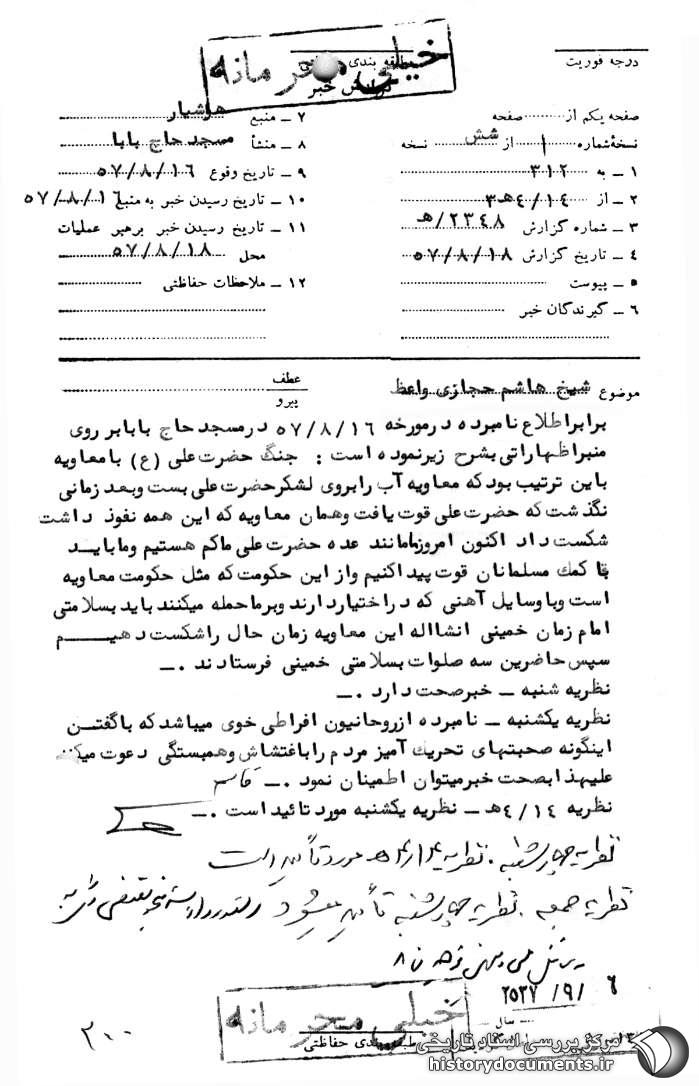 خیلی محرمانه
درجه فوریت
طبقه بندی حفاظتی
گزارش خبر
صفحه یکم از ........ صفحه
نسخهٔ شماره ۱ از شش نسخه
۱ ــ به ۳۱۲
۲ ــ از ۴/۱۴هـ۳
۳ ــ شماره گزارش ۲۳۴۸/هـ
۴ ــ تاریخ گزارش ۵۷/۸/۱۸
۵ ــ پیوست
۶ ــ گیرندگان خبر
۷ ــ منبع هوشیار
۸ ــ منشأ مسجد حاج بابا
۹ ــ تاریخ وقوع ۵۷/۸/۱۶
۱۰ ــ تاریخ رسیدن خبر به منبع ۵۷/۸/۱۶
۱۱ ــ تاریخ رسیدن خبر برهبر عملیات
محل ۵۷/۸/۱۸
۱۲ ــ ملاحظات حفاظتی
موضوع شیخ هاشم حجازی واعظ
عطف
پیرو
برابر اطلاع نامبرده در مورخه ۵۷/۸/۱۶ در مسجد حاج بابا بر روی
منبر اظهاراتی بشرح زیر نموده است : جنگ حضرت علی (ع) با معاویه
باین ترتیب بود که معاویه آب را بروی لشکر حضرت علی بست و بعد زمانی
نگذشت که حضرت علی قوت یافت و همان معاویه که این همه نفوذ داشت
شکست داد اکنون امروز ما مانند عده حضرت علی ما کم هستیم و ما باید
با کمك مسلمانان قوت پیدا کنیم و از این حکومت که مثل حکومت معاویه
است و با وسایل آهنی که در اختیار دارند و بر ما حمله میکنند باید بسلامتی
امام زمان خمینی انشااله این معاویه زمان حال را شکست دهیم
سپس حاضرین سه صلوات بسلامتی خمینی فرستادند .ــ
نظریه شنبه ــ خبر صحت دارد .ــ
نظریه یکشنبه ــ نامبرده از روحانیون افراطی خوی میباشد که با گفتن
اینگونه صحبتهای تحریك آمیز مردم را باغتشاش و همبستگی دعوت میکند
علیهذا بصحت خبر میتوان اطمینان نمود .ــ قاسم
نظریه ۴/۱۴هـ ــ نظریه یکشنبه مورد تائید است .ــ
نظریه چهارشنبه . نظریه ۴/۱۴هـ مورد تأیید است
نظریه جمعه . نظریه چهارشنبه تأیید میشود
۶
۲۵۳۷/۹/
خیلی محرمانه
طبقه بندی حفاظتی
سال
۲۰۰
مرکز بررسی اسناد تاریخی
historydocuments.ir